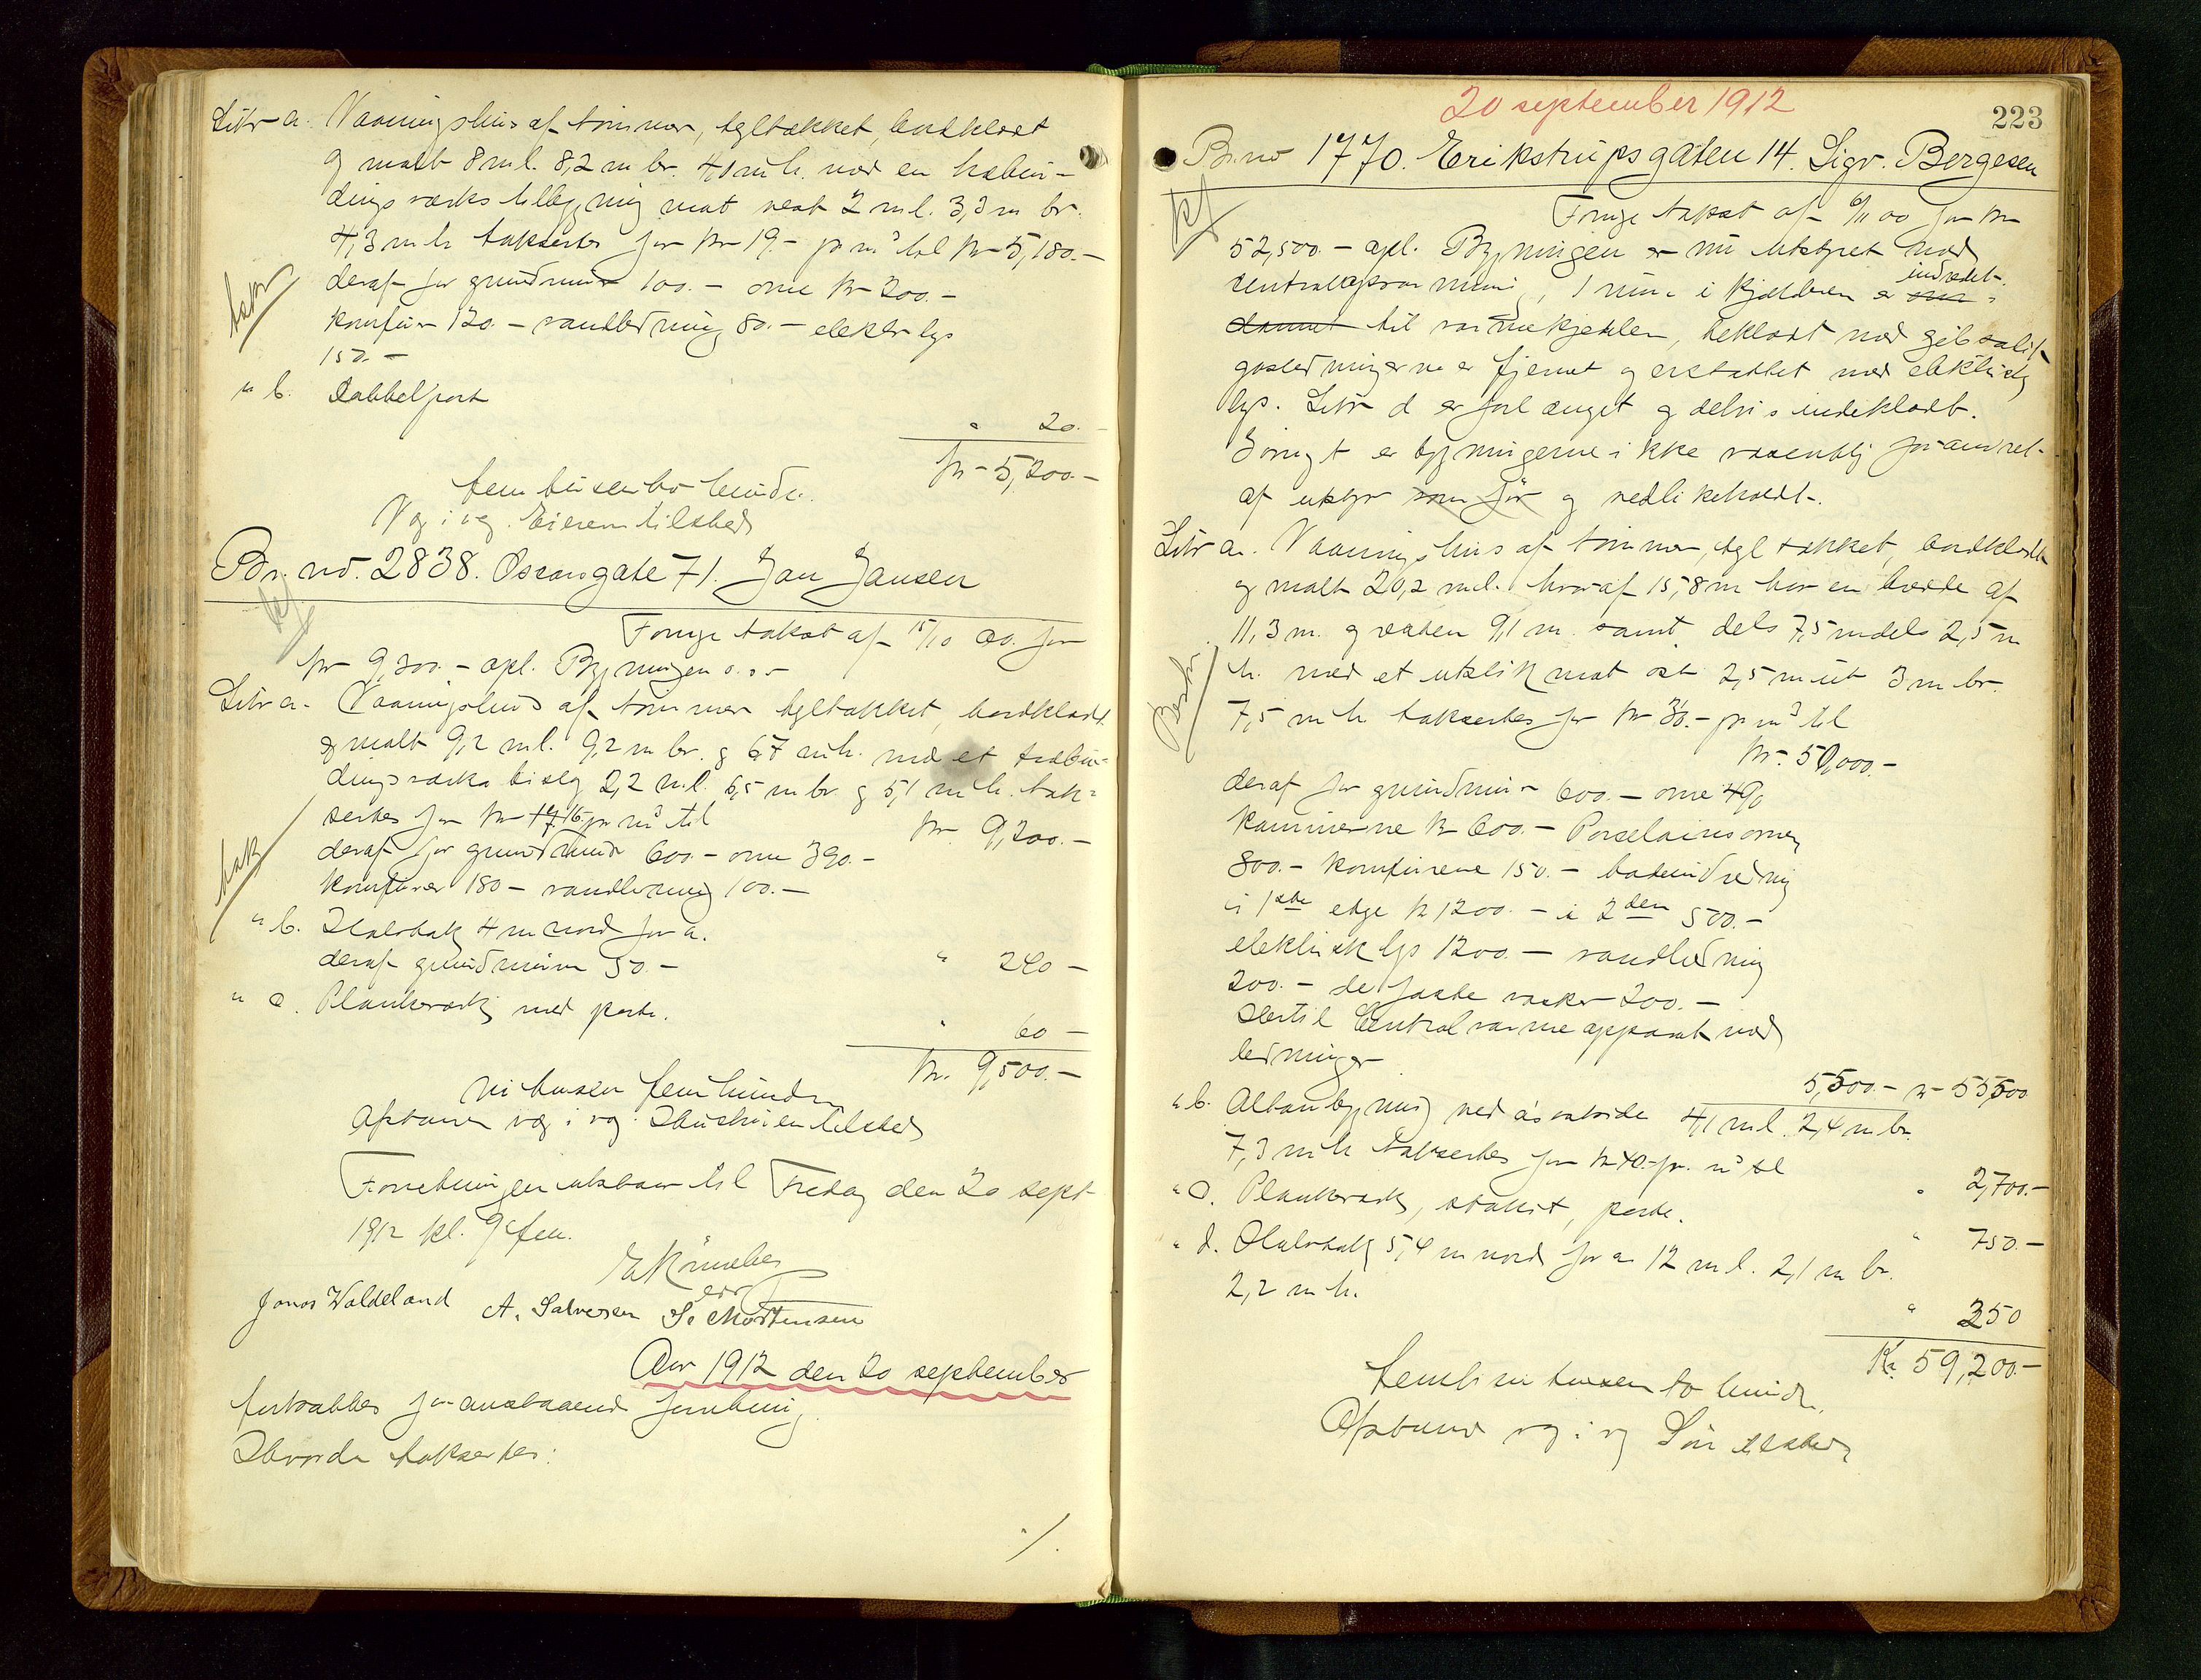 Litr a. Vaaningshus af tømmer, tegltækket, bordklædt
og malt 8 m l. 8,2 m br. 4,0 m h. med en halvbin-
dingsværks tilbygning mot vest 2 m l. 3,3 m br.
4,3 m h. takseertes for kr 19.- pr m³ til kr 5,180.-
deraf for grundmur 100.- ovne kr 200.-
komfur 120.- vandledning 80.- elektr lys
150.-
" b. Dobbelport
" 20.-
kr 5,200.-
fem tusen to hundre.
Væg i væg. Eieren tilsted
Br. no. 2838. Oscarsgate 71. Jan Jansen
Forrige takst af 15/10 00. for
kr 9,300.- opl. Bygningen o.s.v.
Litr a. Vaaningshus af tømmer tegltækket, bordklædt
og malt 9,2 m l. 9,2 m br. og 6,7 m h. med et halvbin-
dingsværks bislag 2,2 m l. 6,5 m br. og 5,1 m h. tak-
sertes for kr 16 pr m³ til
kr 9,200.-
deraf for grundmur 600.- ovne 390.-
komfurer 180.- vandledning 100.-
" b. Halvtak 4 m nord for a.
deraf grundmur 50.-
" 240 -
" c. Plankeværk med porte.
" 60 -
Kr. 9,500.-
Ni tusen fem hundre
Afstand væg i væg. Hustruen tilsted
Forretningen utstaar til Fredag den 20 sept.
1912 kl. 9 efm.
Jonas Valdeland A. Salvesen S. Mortensen
Aar 1912 den 20 september
fortsattes foranstaaende forretning.
Hvorda taksertes:
./.
20 september 1912
223
Br. no 1770. Erikstrupsgaten 14. Sigv. Bergesen
Forrige takst af 6/11 00 for kr
52,500.- opl. Bygningen er nu utstyret med
centralopvarmning, 1 rum i kjælderen er indredet
til varmekjedelen, beklædt med gibs
gasledningerne er fjernet og erstattet med elektrisk
lys. Litr d er forlænget og delvis indeklædt.
Iøvrigt er bygningerne ikke væsentlig forandret
af utstyr som før og vedlikeholdt.
Litr a. Vaaningshus af tømmer, tegltækket, bordklædt
og malt 20,2 m l. hvoraf 15,8 m har en bredde af
11,3 m. og resten 9,1 m. samt dels 7,5 m dels 2,5 m
h. med et utstik mot øst 2,5 m ut 3 m br.
7,5 m h. taksertes for kr 30.- pr m³ til
kr. 50,000.-
deraf for grundmur 600.- ovne 490
kaminerne kr 600.- Porcelainsovne
800.- komfurene 150.- badeindredning
i 1ste etge kr 1200.- i 2den 500.-
elektrisk lys 1200.- vandledning
200.- de faste vasker 200.-
Hertil Centralvarmeapparat med
ledninger
5,500.- kr 55,500
" b. Altanbygning ved a's østside 4,1 m l. 2,4 m br.
7,3 m h. taksertes for kr 40.- pr. m³ til
" 2,700.-
" c. Plankeværk, stakit, porte.
" 750.-
" d. Halvtak 5,4 m nord for a 12 m l. 2,1 m br.
2,2 m h.
" 250
Kr. 59,200.-
Femti ni tusen to hundre.
Afstand væg i væg Søn tilsted